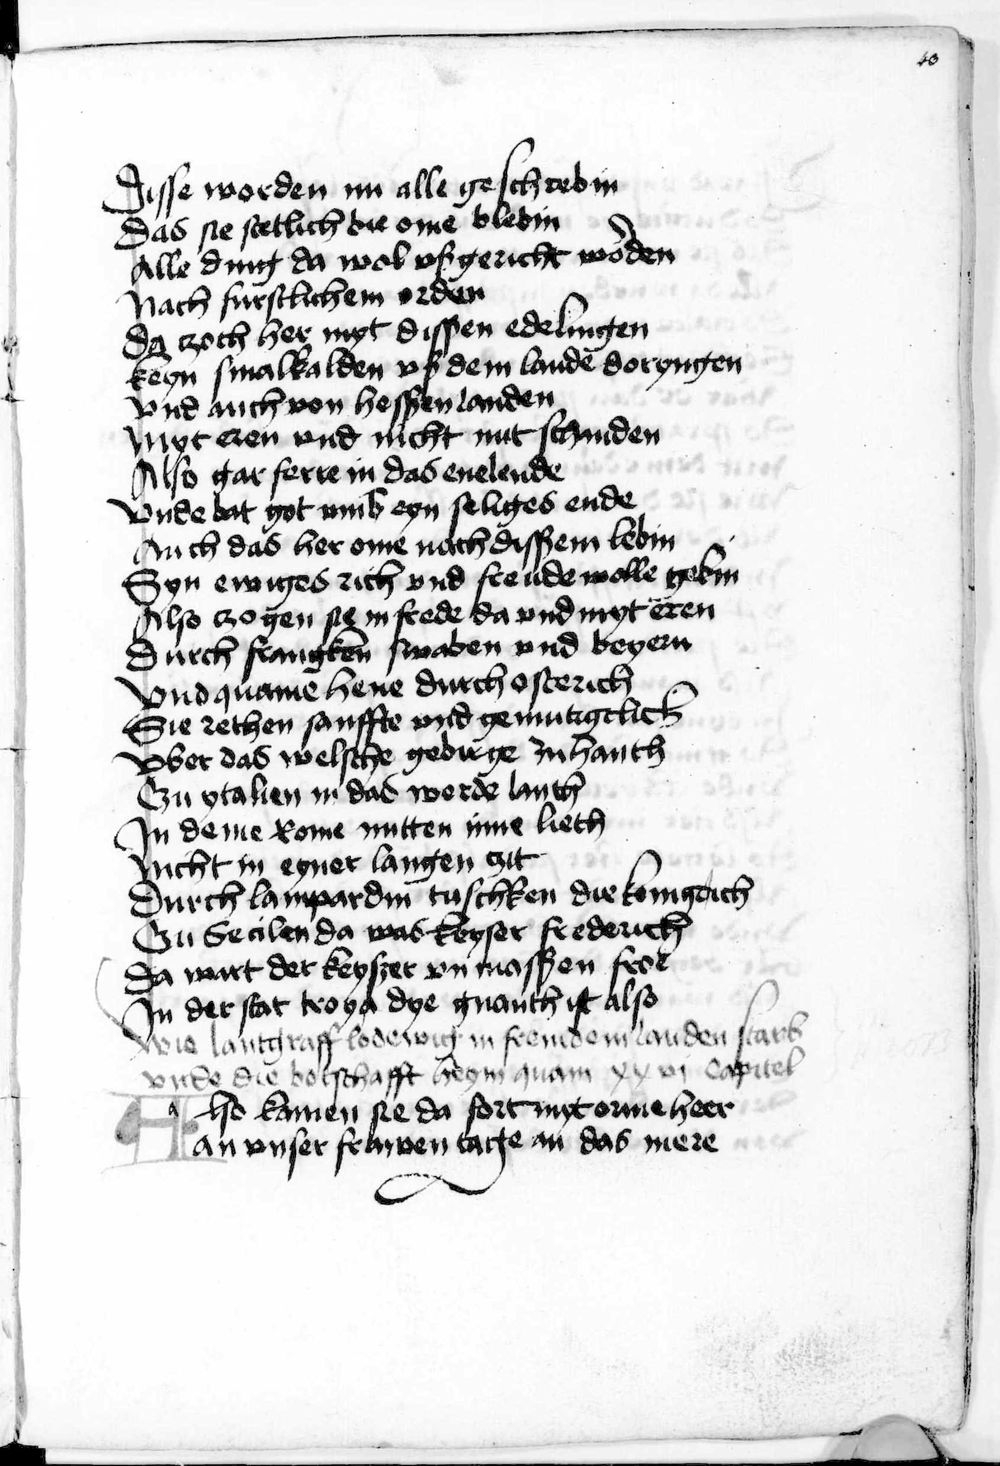 40
Disse worden nu alle geschrebin
Das sie stetlich bie ome blebin
Alle dung da wol uß gericht woden
Nach furstlichem orden
Da zoch her myt dissen edelingen
keyn smalkalden uß dem lande doryngen
Vnd auch von hessen landen
Myt eren vnd nicht mit schanden
Also gar ferre in das enelende
Vnde bat got vmb eyn seliges ende
Auch das her ome nach dissem lebin
Syn ewiges rich vnd freude wolle gebin
Also zogen sie in frede da vnd myt eren
Durch frangken swaben vnd beyern
Vnd quamē hene durch osterich
Sie rethen sanffte vnd gemutiglich
Vber das welsche gebirge zu hanth
Zu ytalien in das werde lanth
In deme Rome mitten inne lieth
Nicht in eyner langen zit
Durch lampardin tuschken die konigrich
Zu Secilen da was keyser frederich
Da wart der keyszer vn massen fro
In der stat troya dye gnanth ist also
Wie lantgraff lodewig in fremdem landen starb
vnde die botschafft heym quam xxvi Capitel
Also kamen sie da fort myt orme heer
an vnser frawen tage an das mere